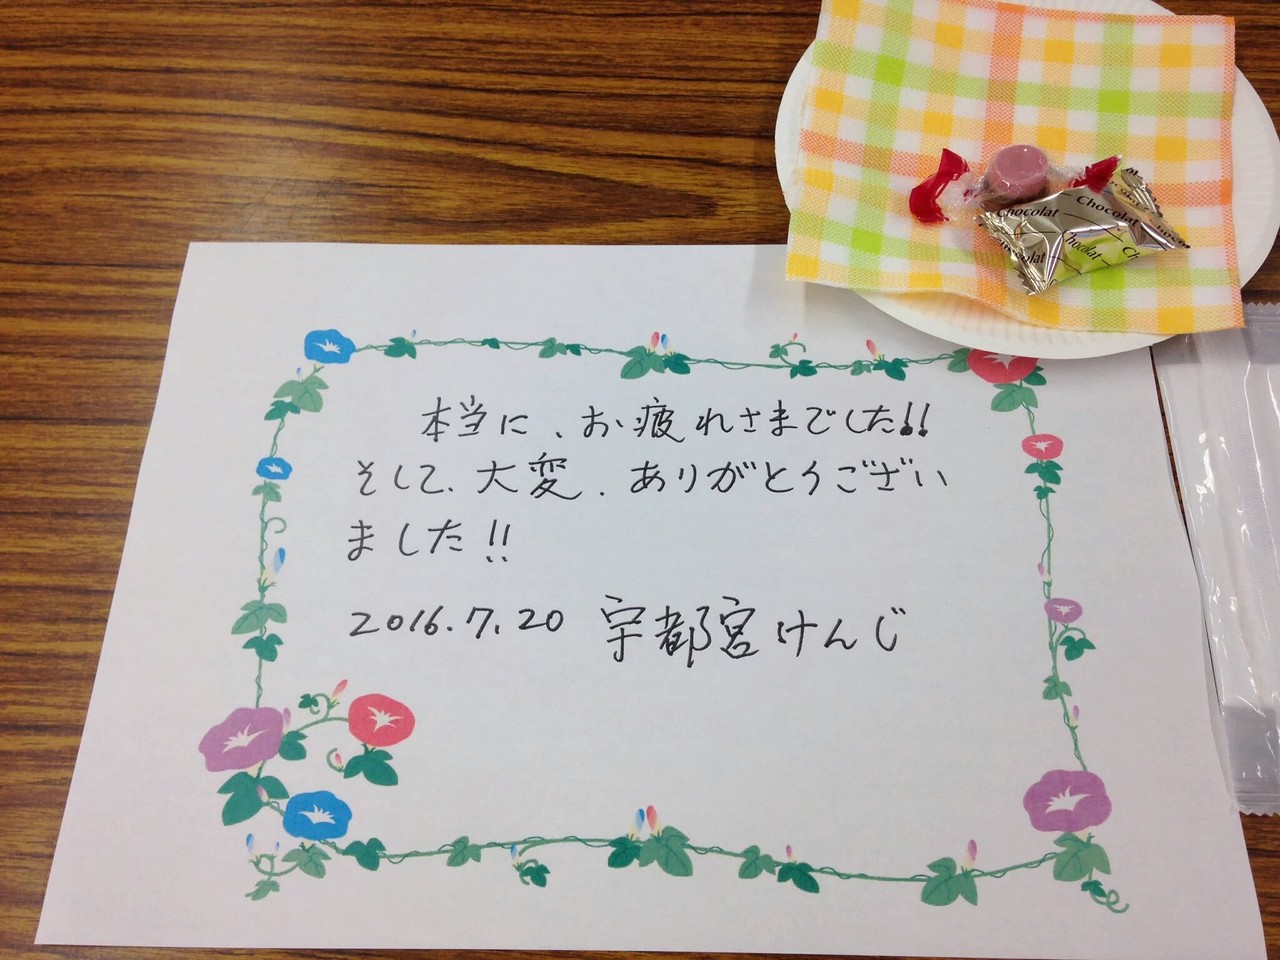 Chocolat
Chocolat
Chocolat
本当に、お疲れさまでした!!
そして、大変、ありがとうござい
ました!!
2016.7.20 宇都宮けんじ